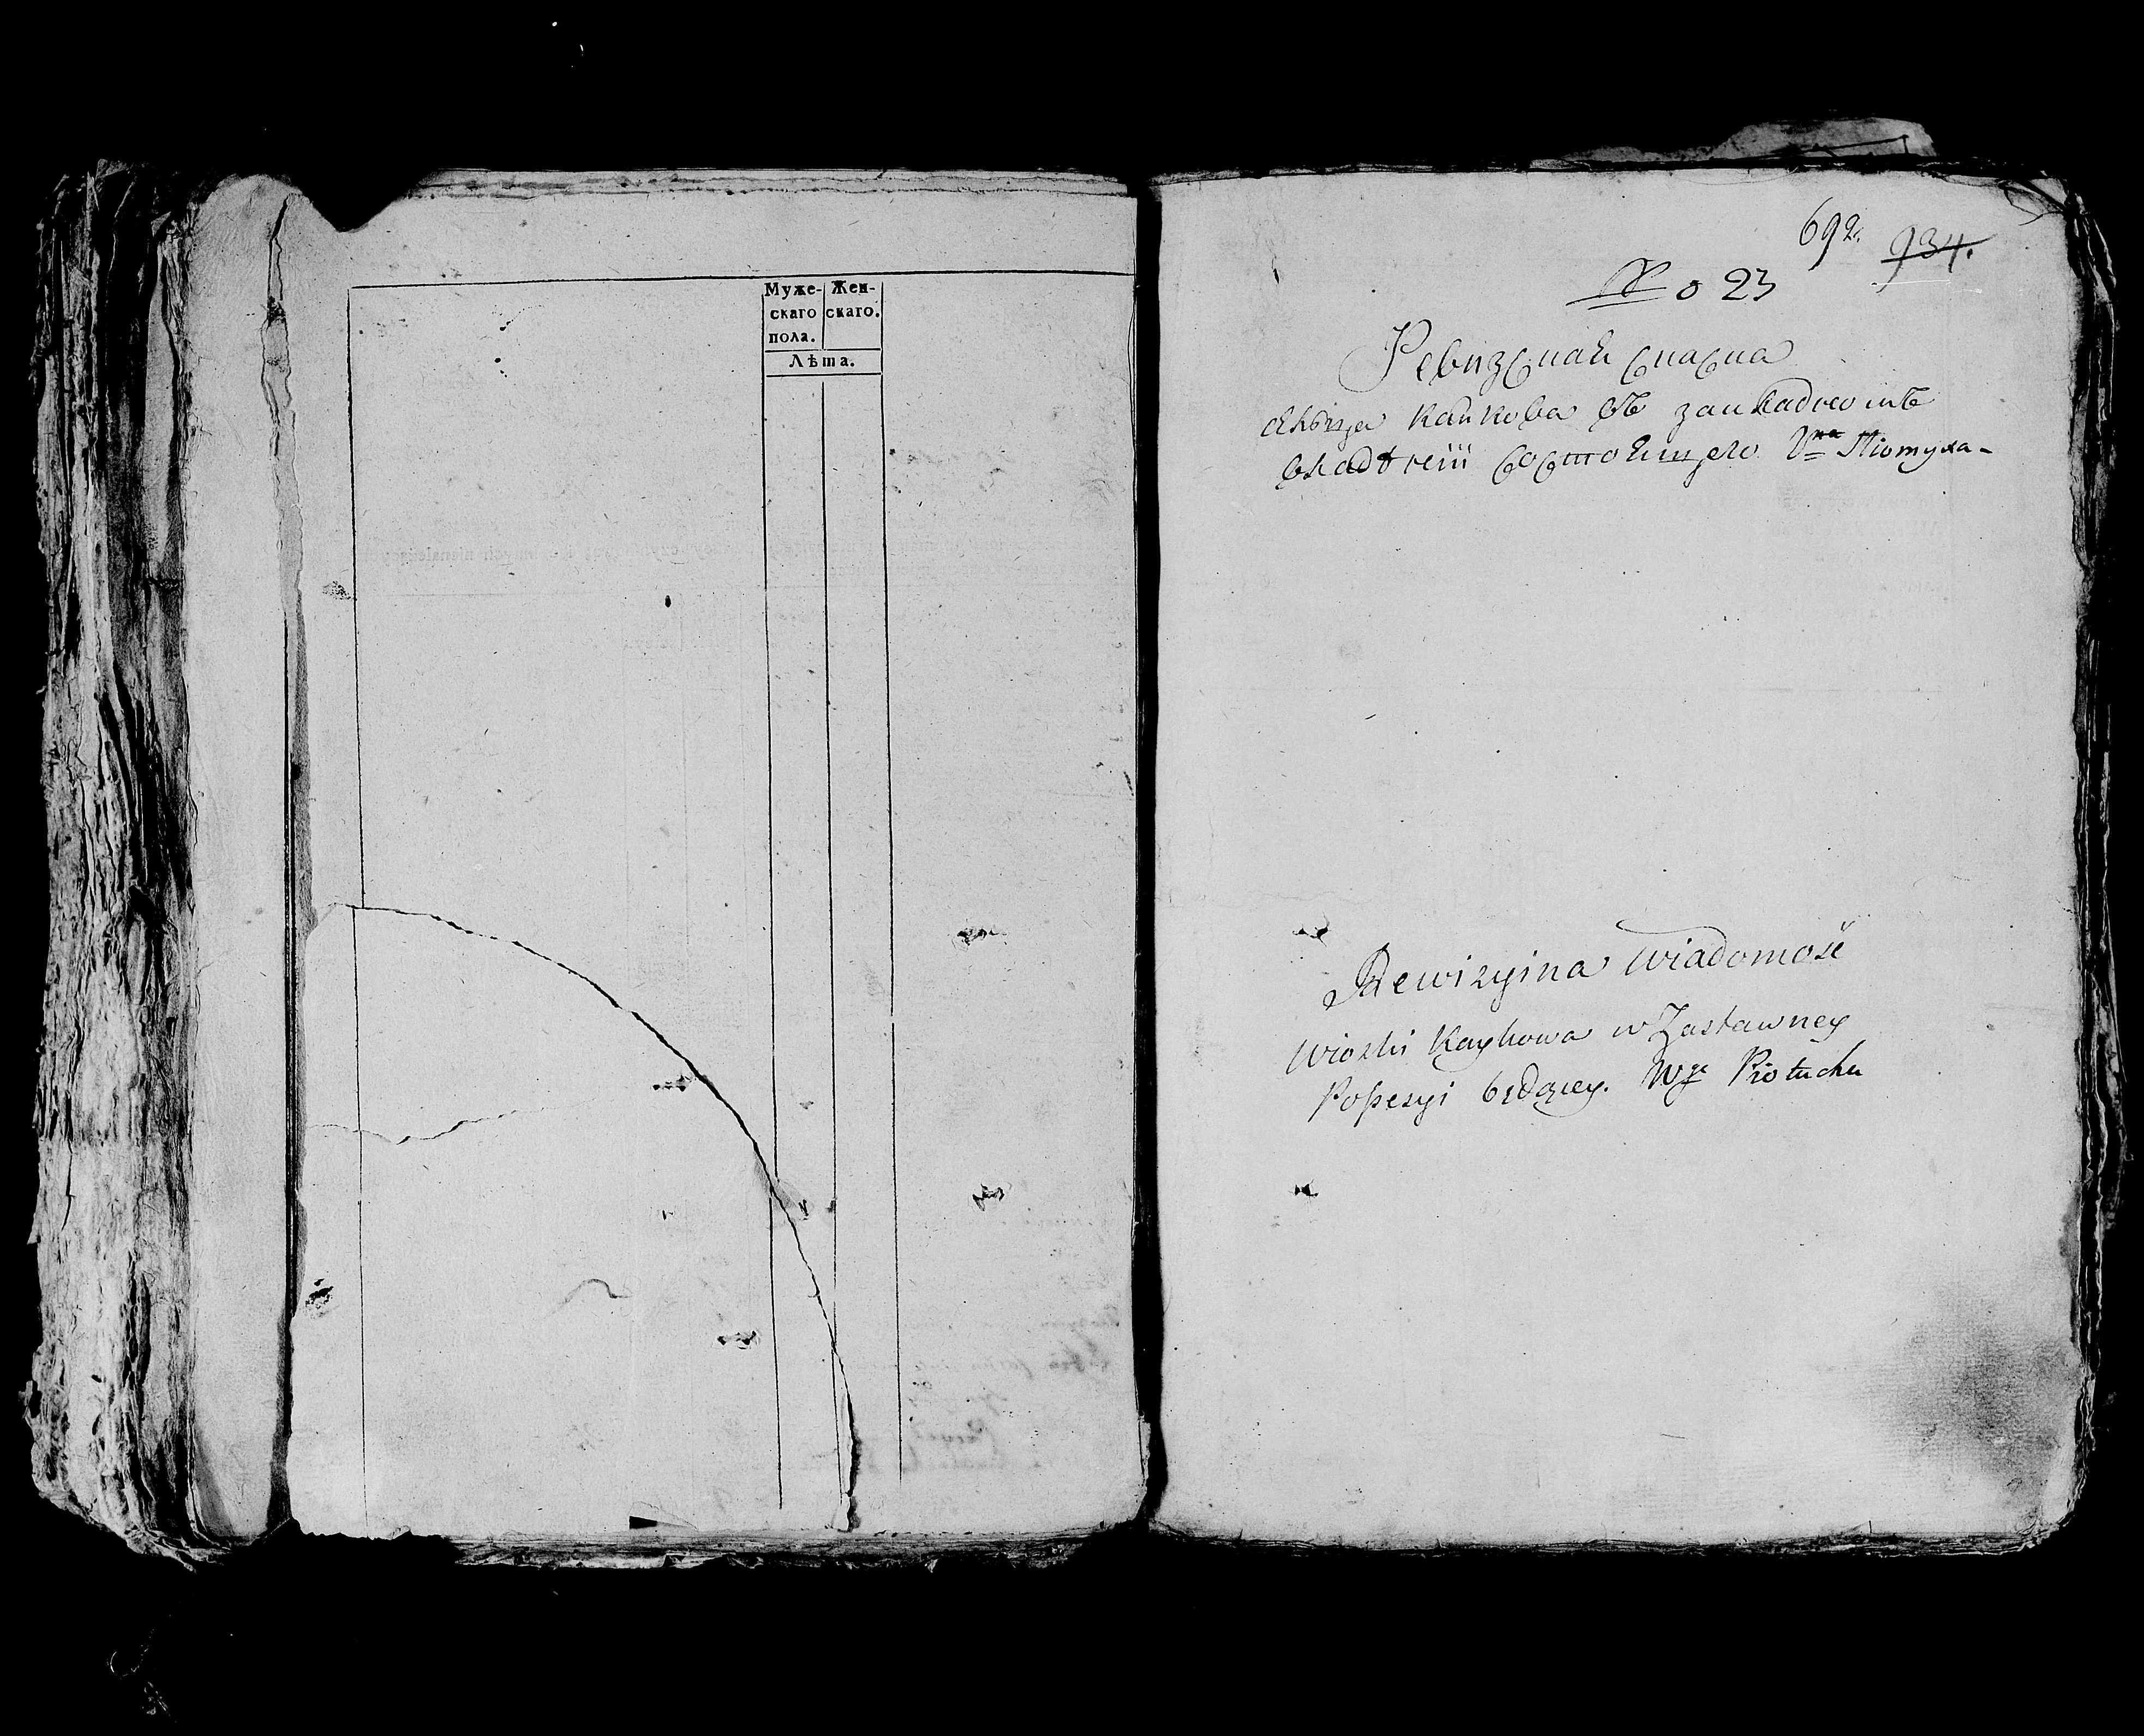 Муже-
скаго
пола.
Жен-
скаго.
Лѣта.
692.
934.
No 23
Ревизсная снасна
Кайкова въ закладномъ
владѣнiи состоящего Пiотуха-
Rewizyina Wiadomość
Wioski Kaykowa w Zastawney
Possesyi będącey. Wgo Piotucha